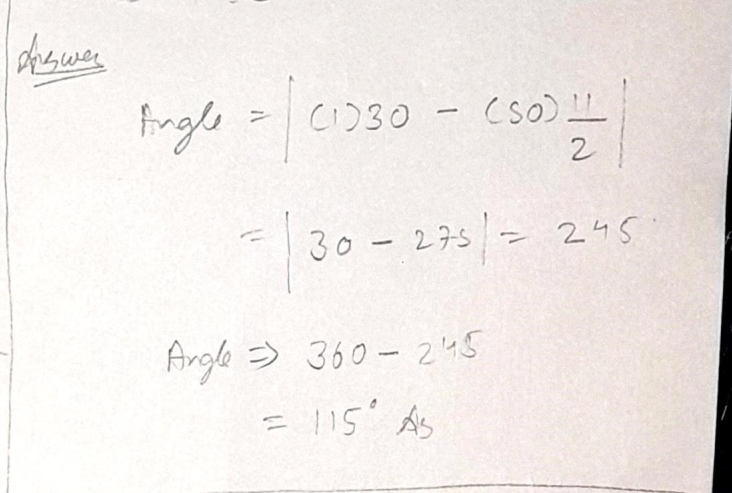 Answer
Angle = | (1)30 - (50) 11/2 |
= | 30 - 275 | = 245
Angle ⇒ 360 - 245
= 115° As